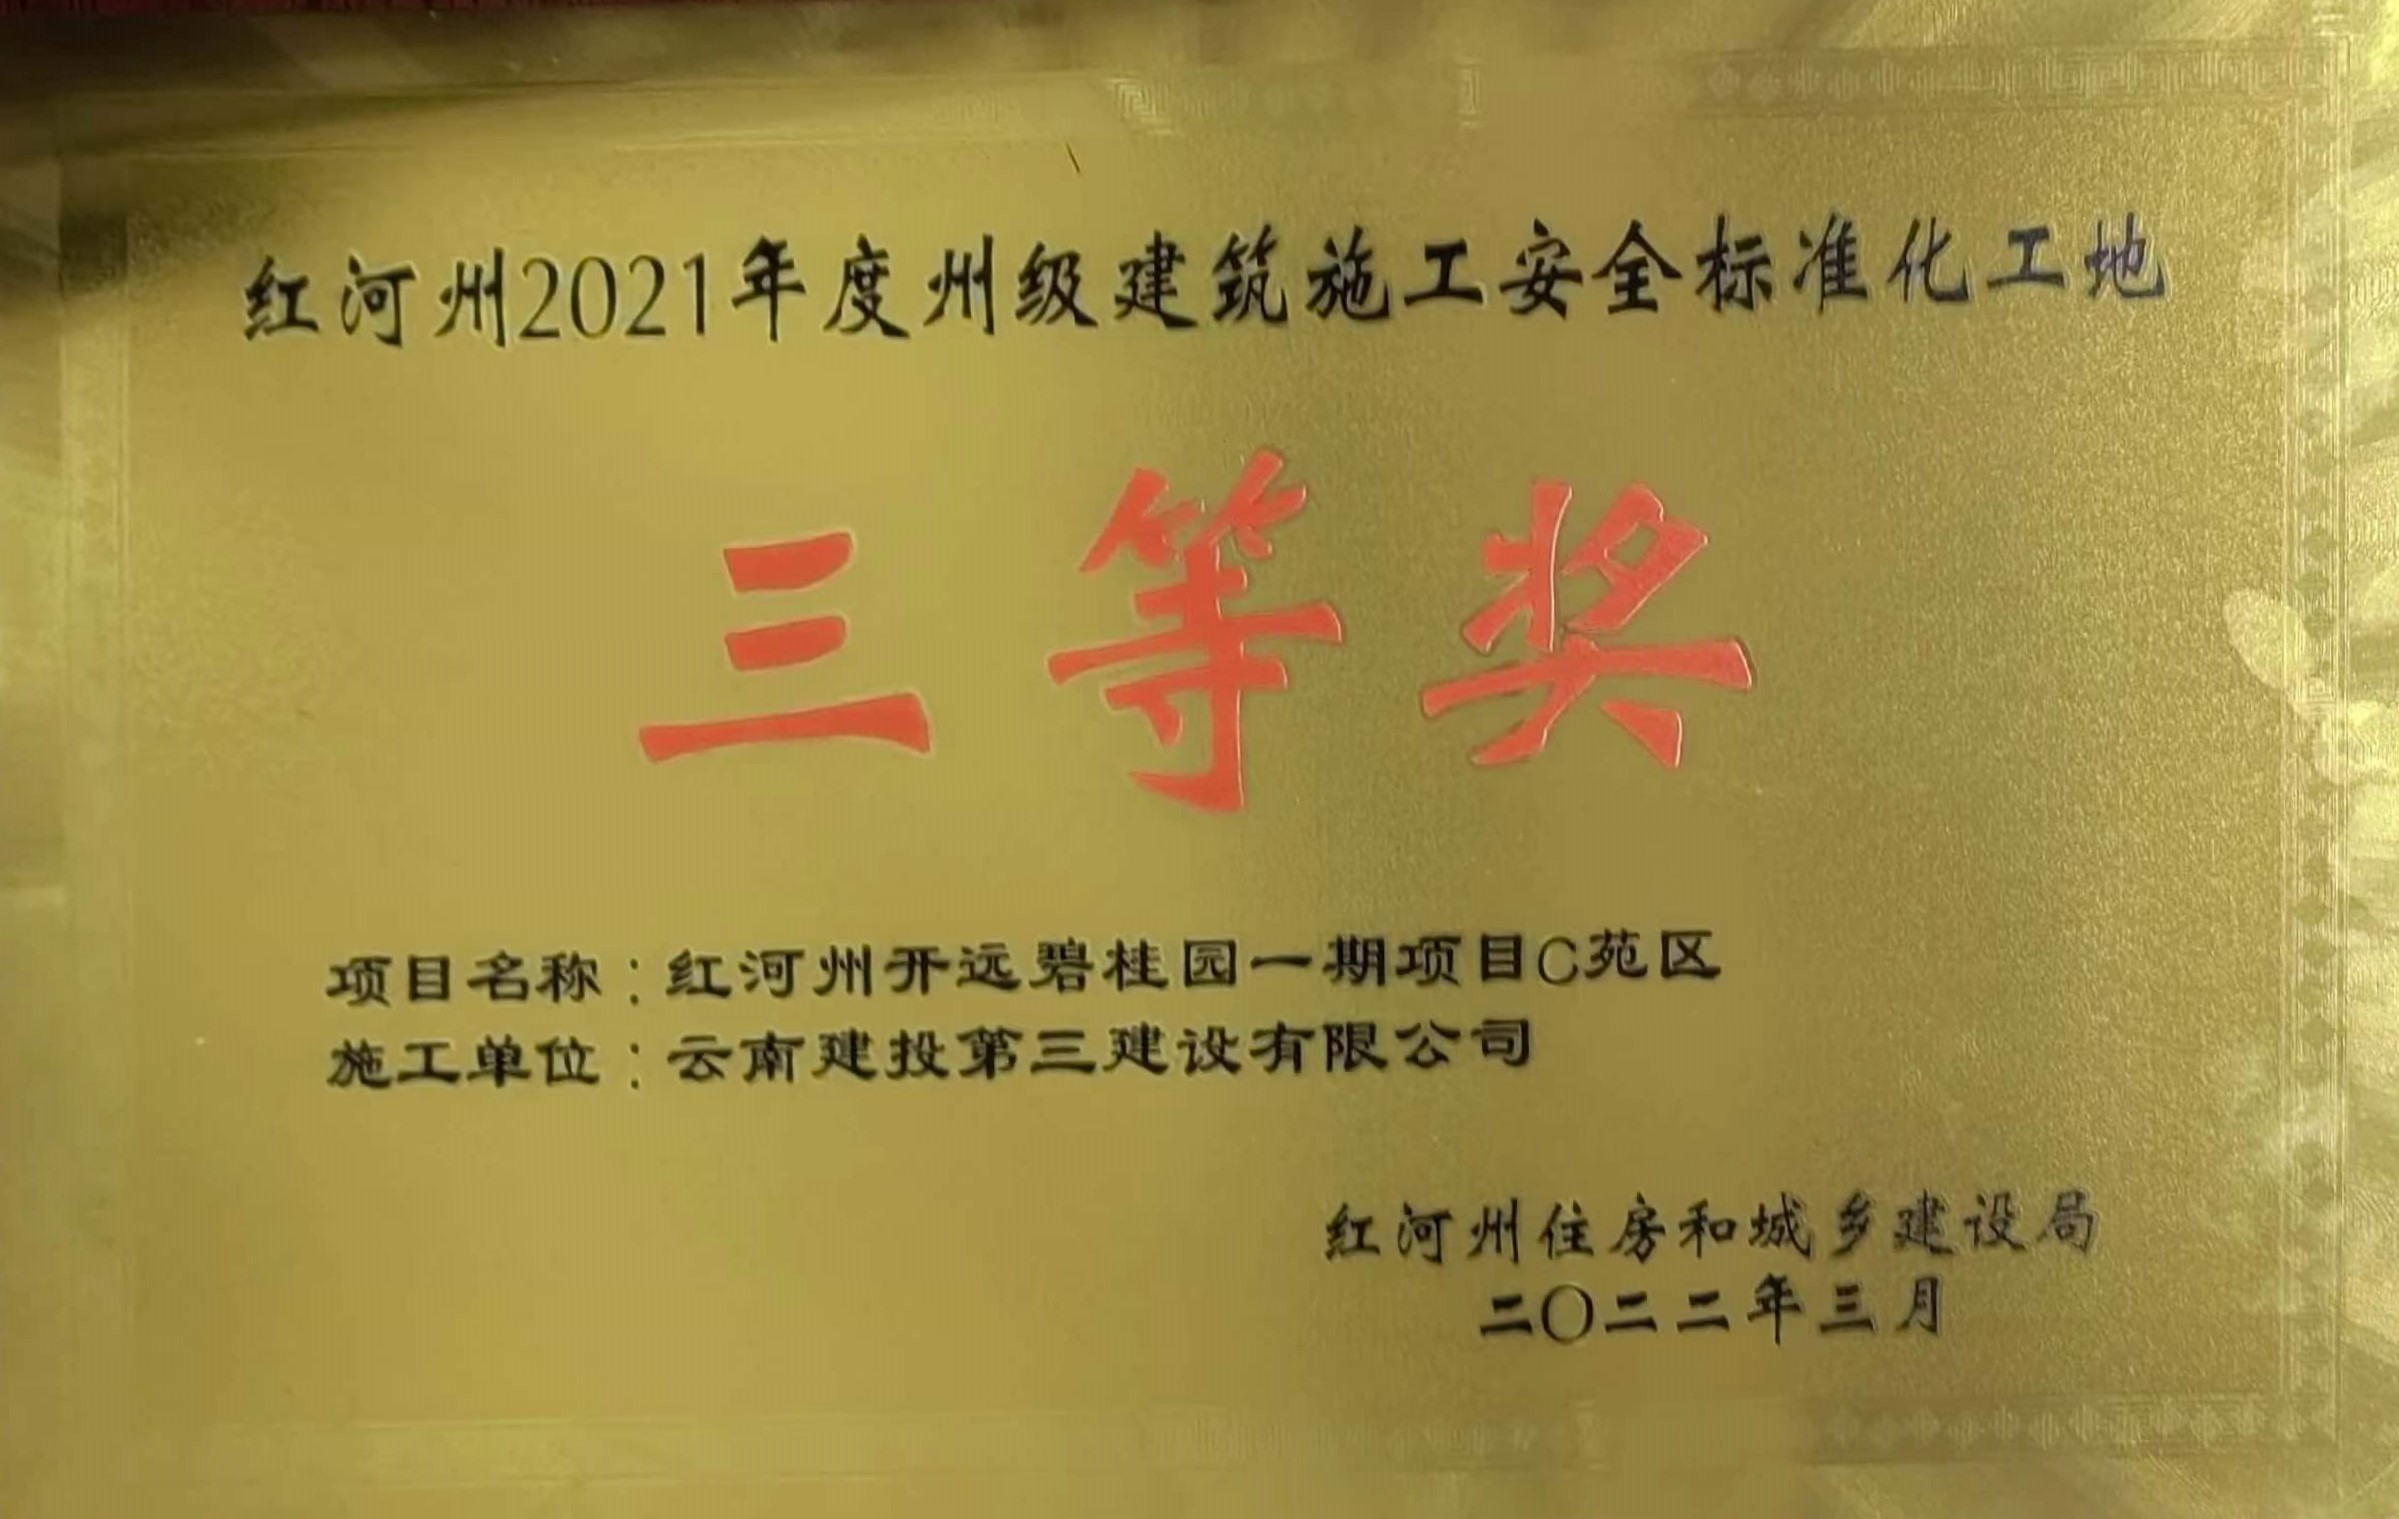 红河州2021年度州级建筑施工安全标准化工地
三等奖
项目名称：红河州开远碧桂园一期项目C苑区
施工单位：云南建投第三建设有限公司
红河州住房和城乡建设局
二〇二二年三月